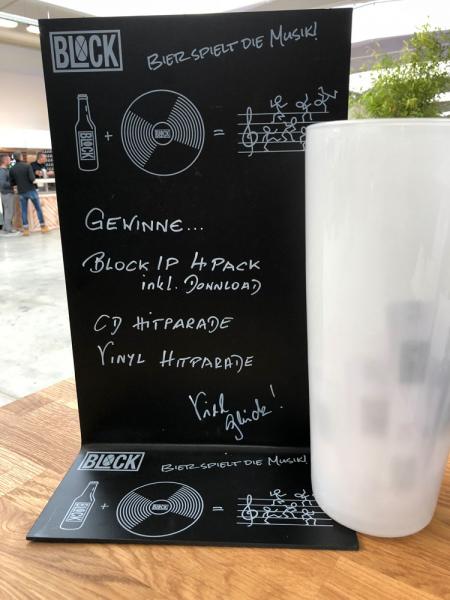 BLOCK
BIER SPIELT DIE MUSIK!
BLOCK + BLOCK =
GEWINNE...
BLOCK IP 4PACK
inkl. DOWNLOAD
CD HITPARADE
VINYL HITPARADE
Viel
Glück!
BLOCK
BIER SPIELT DIE MUSIK!
BLOCK + BLOCK =